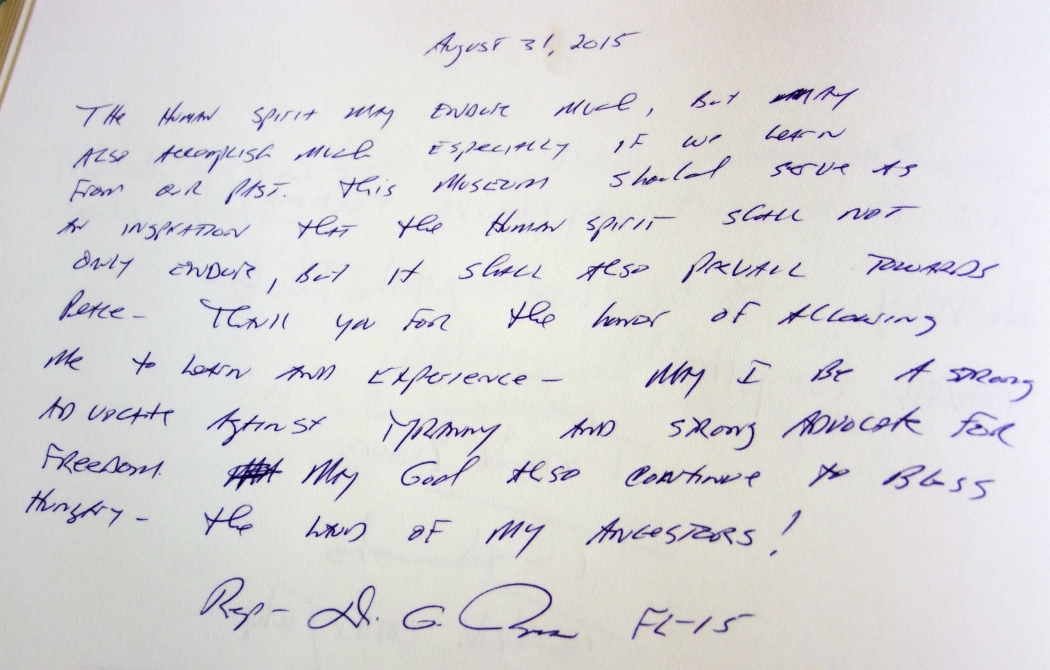 August 31, 2015
The Human Spirit may endure much, but may
also accomplish much especially if we learn
from our past. This museum should serve as
an inspiration that the Human Spirit shall not
only endure, but it shall also prevail towards
Peace - Thank you for the honor of allowing
me to learn and experience - May I be a strong
advocate against tyranny and strong advocate for
Freedom. May God also continue to bless
Hungary - the land of my Ancestors!
Rep - D. G. FL-15